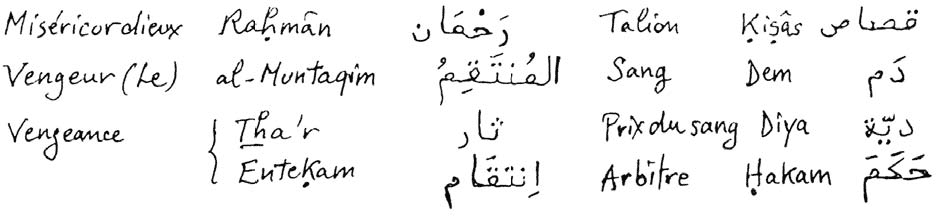 Miséricordieux Raḥmān رَحْمَان Talion Ḳiṣâs قصاص
Vengeur (Le) al-Muntaqim المُنتَقِمُ Sang Dem دَم
Vengeance { T͟ha'r ثار Prix du sang Diya ديّة
Enteḳam اِنتقَام Arbitre Ḥakam حَكَمَ